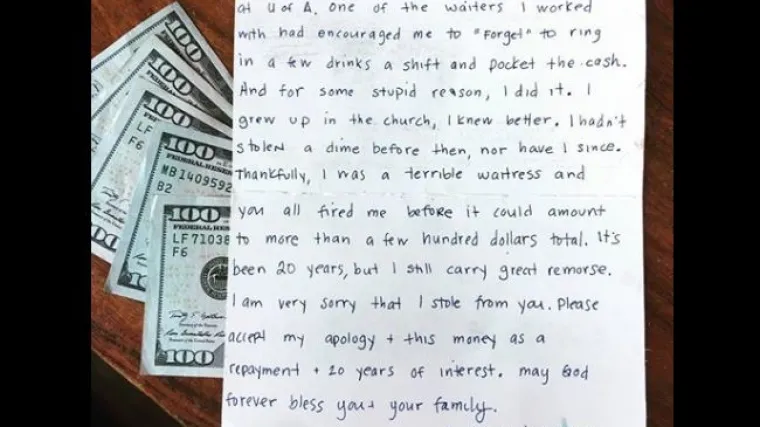 at U of A. One of the waiters I worked
with had encouraged me to "forget" to ring
in a few drinks a shift and pocket the cash.
And for some stupid reason, I did it. I
grew up in the church, I knew better. I hadn't
stolen a dime before then, nor have I since.
Thankfully, I was a terrible waitress and
you all fired me before it could amount
to more than a few hundred dollars total. It's
been 20 years, but I still carry great remorse.
I am very sorry that I stole from you. Please
accept my apology + this money as a
repayment + 20 years of interest. may God
forever bless you + your family.
100
100
100
LF
F6
100
FEDERAL RESER
MB1409592
B2
100
FEDERAL RESER
LF71038
F6
100